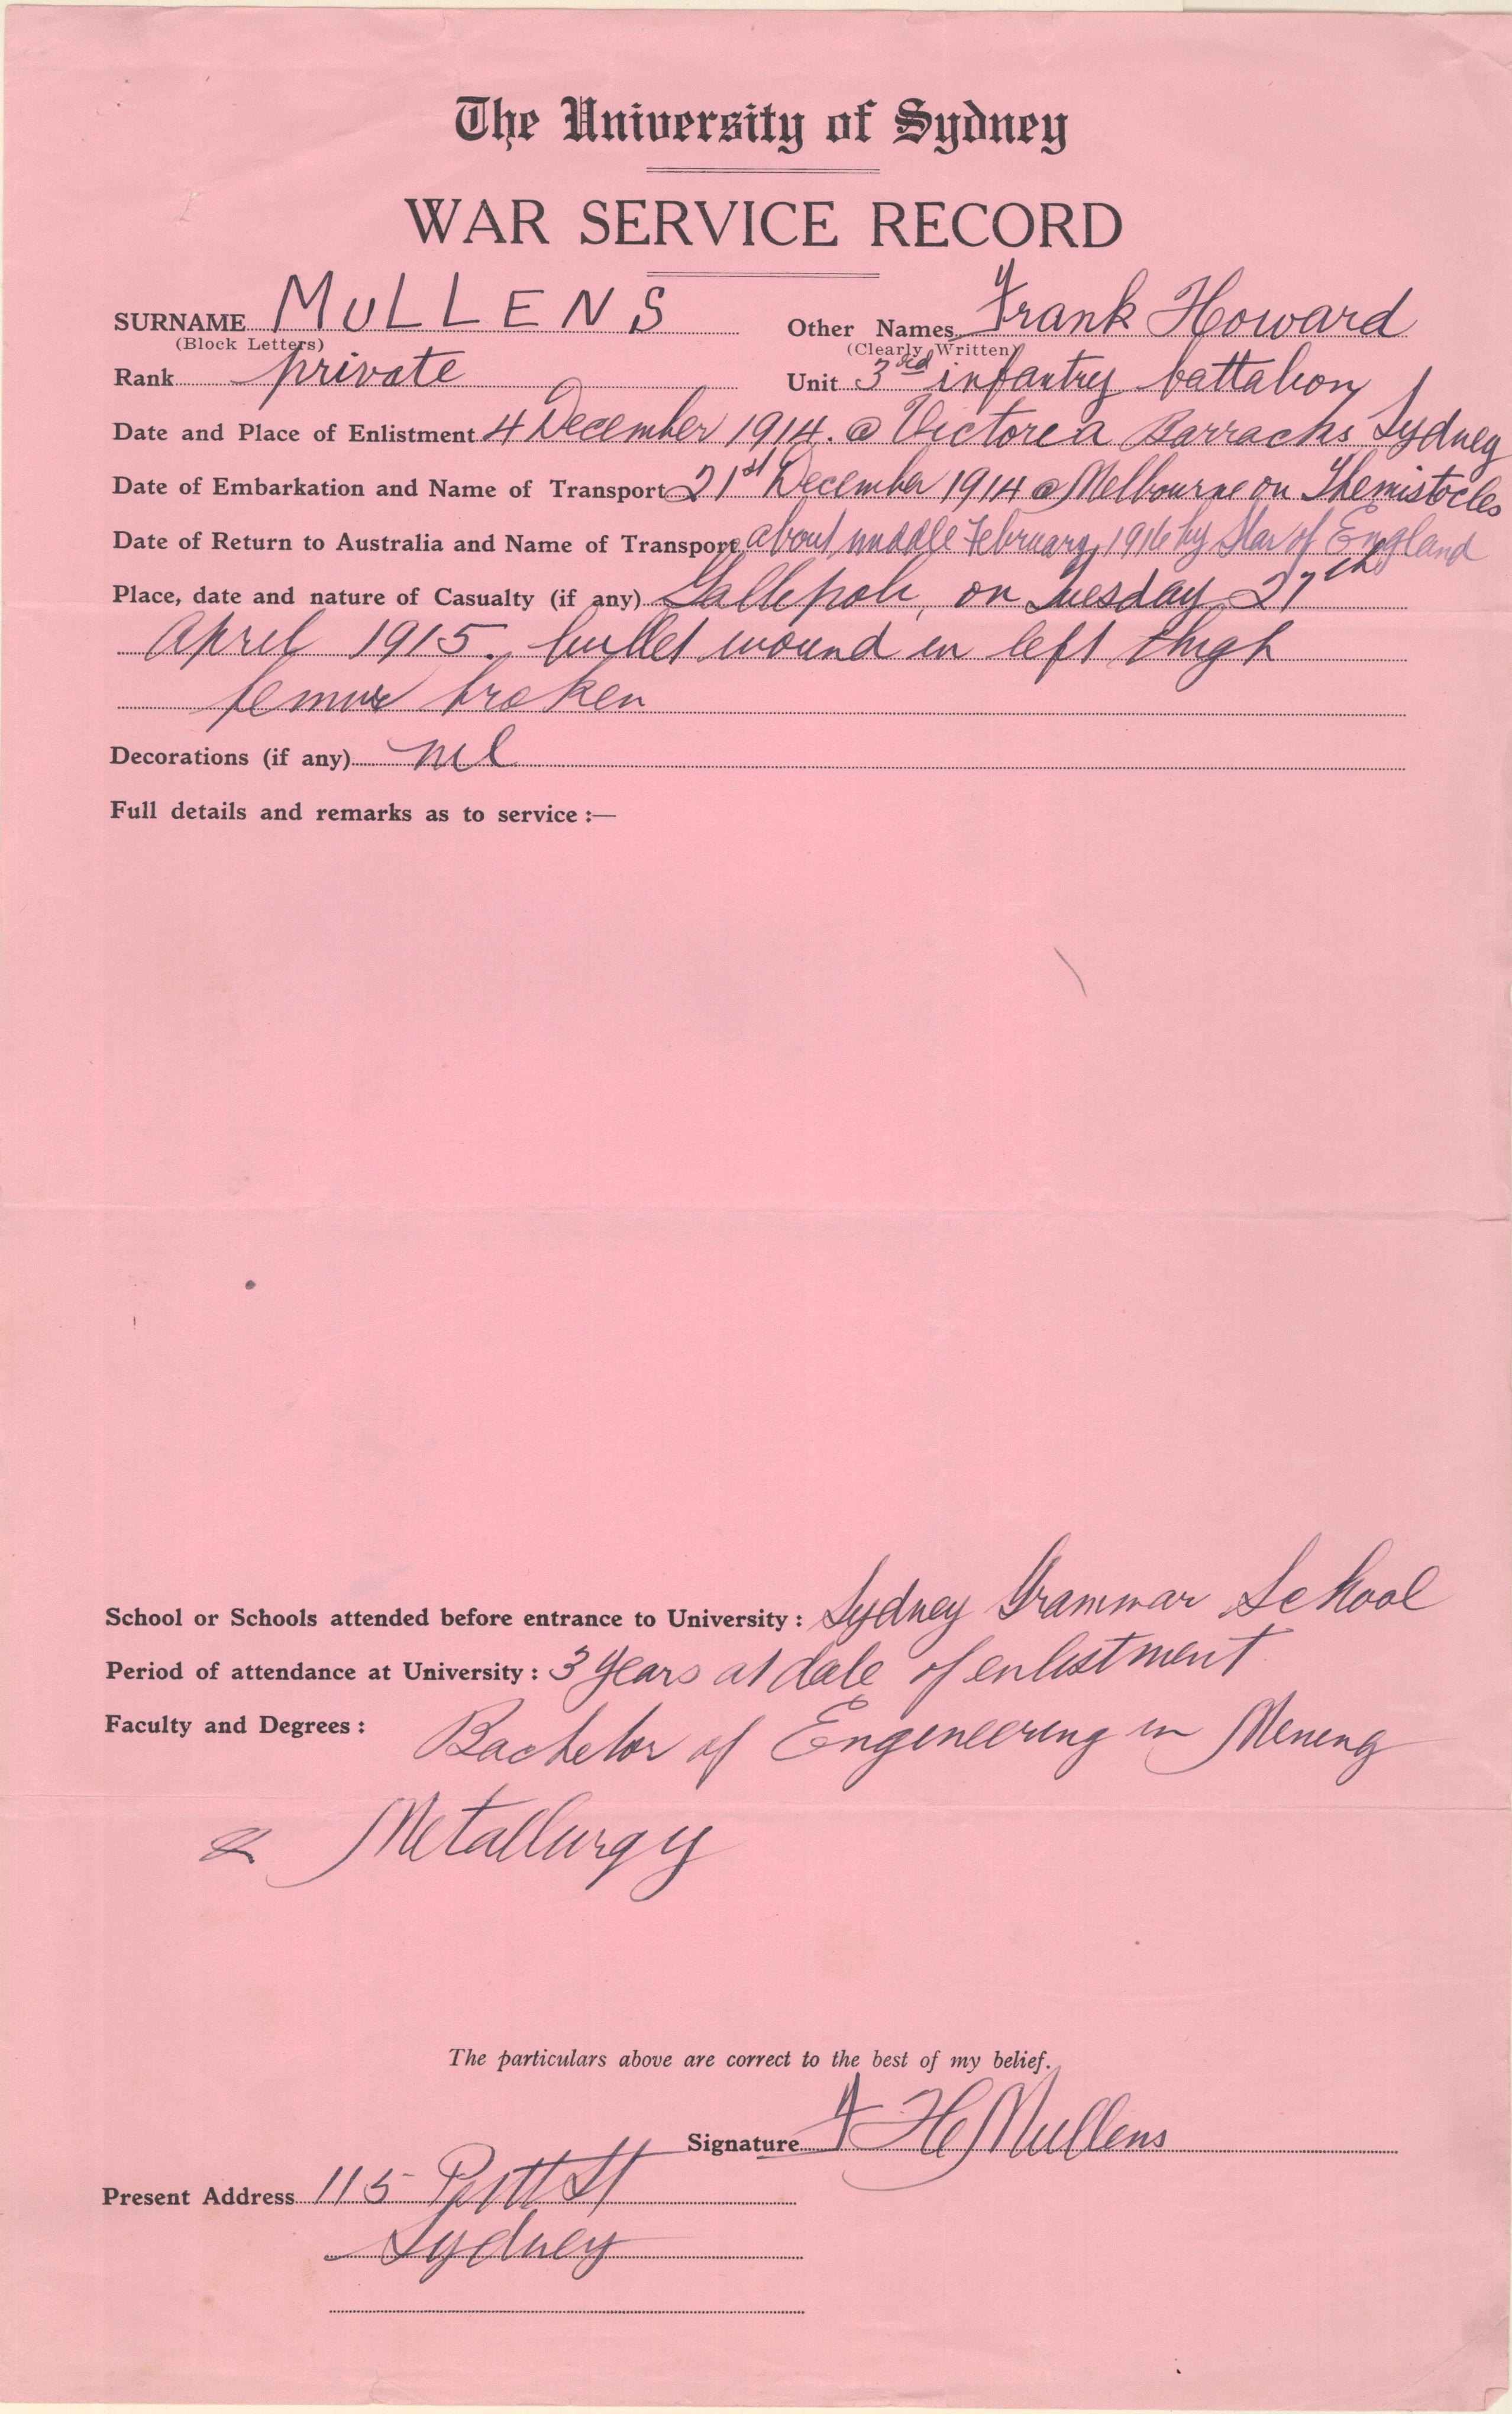 The University of Sydney
WAR SERVICE RECORD
SURNAME MULLENS Other Names Frank Howard
(Block Letters) (Clearly Written)
Rank private Unit 3rd infantry battalion
Date and Place of Enlistment 4 December 1914. @ Victoria Barracks Sydney
Date of Embarkation and Name of Transport 21st December 1914 @ Melbourne on Themistocles
Date of Return to Australia and Name of Transport about middle February 1916 by Star of England
Place, date and nature of Casualty (if any) Gallipoli, on Tuesday 27th
April 1915. bullet wound in left thigh
femur broken
Decorations (if any) nil
Full details and remarks as to service :—
School or Schools attended before entrance to University : Sydney Grammar School
Period of attendance at University : 3 years at date of enlistment
Faculty and Degrees : Bachelor of Engineering in Mining
& Metallurgy
The particulars above are correct to the best of my belief.
Signature F H Mullens
Present Address 115 Pitt St
Sydney